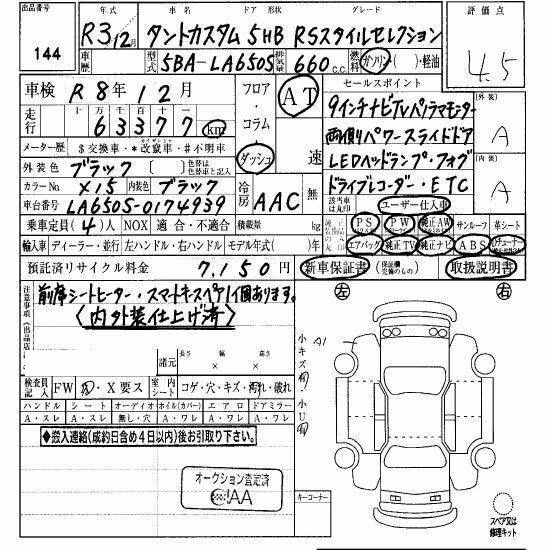 出品番号
144
年式
R3/12月
車歴
車名 ドア形状 グレード
タントカスタム 5HB RSスタイルセレクション
型式 5BA-LA650S 排気量 660 C.C 燃料 ガソリン・( )・軽油
評価点
4.5
外装 A
内装 A
車検 R8年12月
走行 十 万 千 百 十 一
63377 km
メーター歴 $交換車・*改竄車・#不明車
外装色 ブラック ( ) 色替は元色車名と記入
カラーNo. X15 内装色 ブラック
車台番号 LA650S-0174939
フロア・コラム・ダッシュ
AT
速
冷房 AAC 無
セールスポイント
9インチナビTVパノラマモニター
両側パワースライドドア
LEDヘッドランプ・フォグ
ドライブレコーダー・ETC
該当車は丸印 ユーザー仕入車
乗車定員 (4)人 NOX 適合・不適合 積載量 kg
PS PW 純正AW サンルーフ 革シート
輸入車 ディーラー・並行 左ハンドル・右ハンドル モデル年式( )年
エアバッグ 純正TV 純正ナビ ABS
預託済リサイクル料金 7,150円
新車保証書 (保証欄完備のもの) 取扱説明書
注意事項(出品店)
前席シートヒーター・スマートキースペア1個あります。
〈内外装仕上げ済〉
諸元 長さ 幅 高さ
× ×
左 右
小キズ有・小U有
A1
検査員記入 FW 刻・X要ス 室内シート コゲ・穴・キズ・汚れ・破れ
ハンドル シート オーディオ ホイル(カバー) エアロ ドアミラー
A・スレ A・スレ 無し・穴 A・ワレ A・ワレ A・ワレ
◆搬入連絡(成約日含め4日以内)後お引取り下さい。
オークション査定済
JAA
キーコーナー
スペア又は修理キット